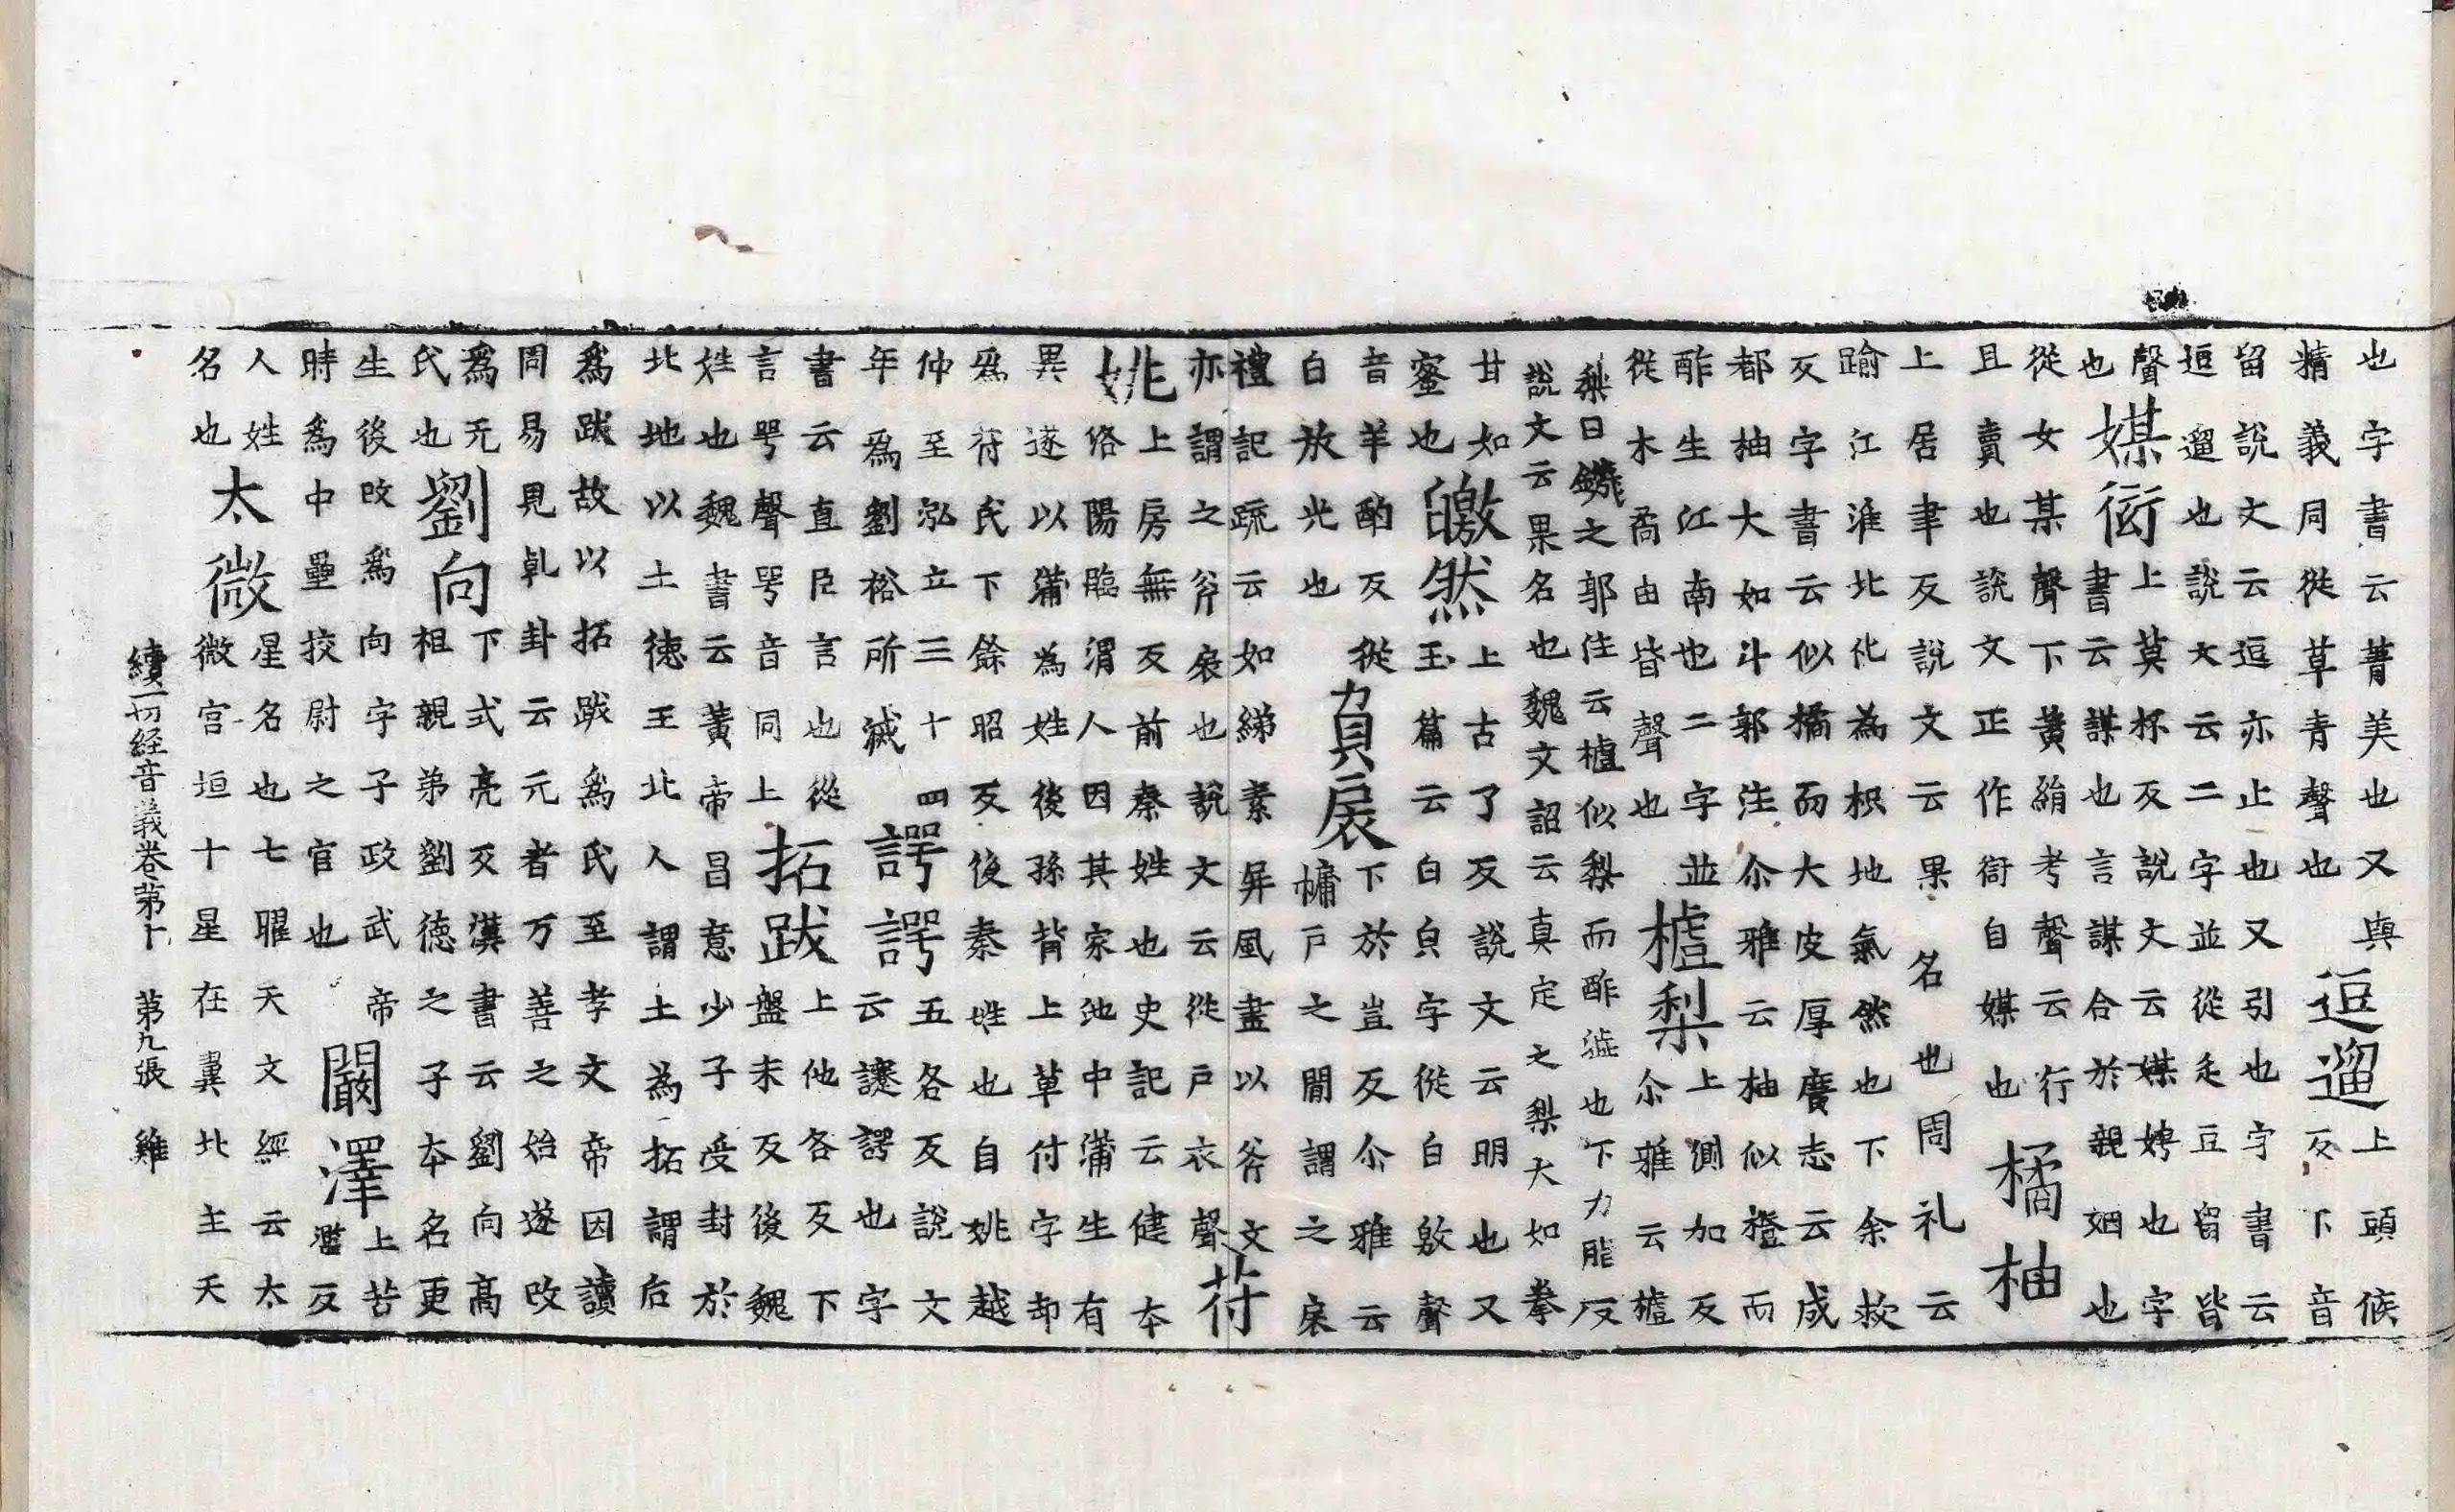 也字書云菁美也又與精義同從草青聲也逗遛上頭候反下音
留說文云逗亦止也又引也字書云逗遛也說文云二字並從辵豆留皆
聲也媒衒上莫杯反說文云媒娉也字書云謀也言謀合於親姻也
從女某聲下黃絹考聲云行且賣也說文正作衙自媒也橘柚
上居聿反說文云果名也周礼云踰江淮北化為枳地氣然也下余救
反字書云似橘而大皮厚廣志云成都柚大如斗郭注尒雅云柚似橙而
酢生江南也二字並從木矞由皆聲也樝梨上側加反尒雅云樝
梨曰鑽之郭注云樝似梨而酢澁也下力脂反說文云果名也魏文詔云真定之梨大如拳
甘如蜜也皦然上古了反說文云明也又玉篇云白皃字從白敫聲
音羊酌反從白放光也負扆下於豈反尒雅云牖戶之間謂之扆
禮記疏云如綈素屏風畫以斧文亦謂之斧扆也說文云從戶衣聲苻
姚上房無反前秦姓也史記云健本洛陽臨渭人因其家池中蒲生有
異遂以蒲為姓後孫背上草付字却為苻氏下餘昭反後秦姓也自姚越
仲至泓立三十四年為劉裕所滅諤諤五各反說文云讜諤也字
書云直臣言也從言咢聲咢音同上拓跋上他各反下盤末反後魏
姓也魏書云黃帝昌意少子受封於北地以土德王北人謂土為拓謂后
為跋故以拓跋為氏至孝文帝因讀周易見乹卦云元者万善之始遂改
為元氏也劉向下式亮反漢書云劉向高祖親弟劉德之子本名更
生後改為向字子政武帝時為中壘挍尉之官也闞澤上苦濫反
人姓名也太微星名也七曜天文經云太微宮垣十星在翼北主天
續一切経音義卷第十 第九張 雞